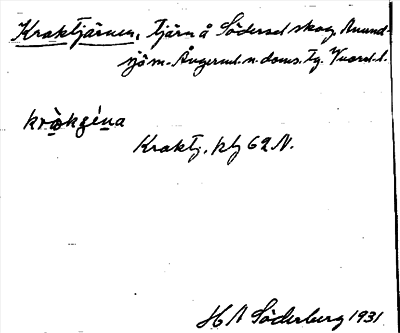 Kraktjärnen, tjärn å Södersel skog Anund-
sjö sn. Ångerml. n. doms. tg. Vnord. l.
kròkǥéna
Kraktj. ktg 62 N.
H A Söderberg 1931